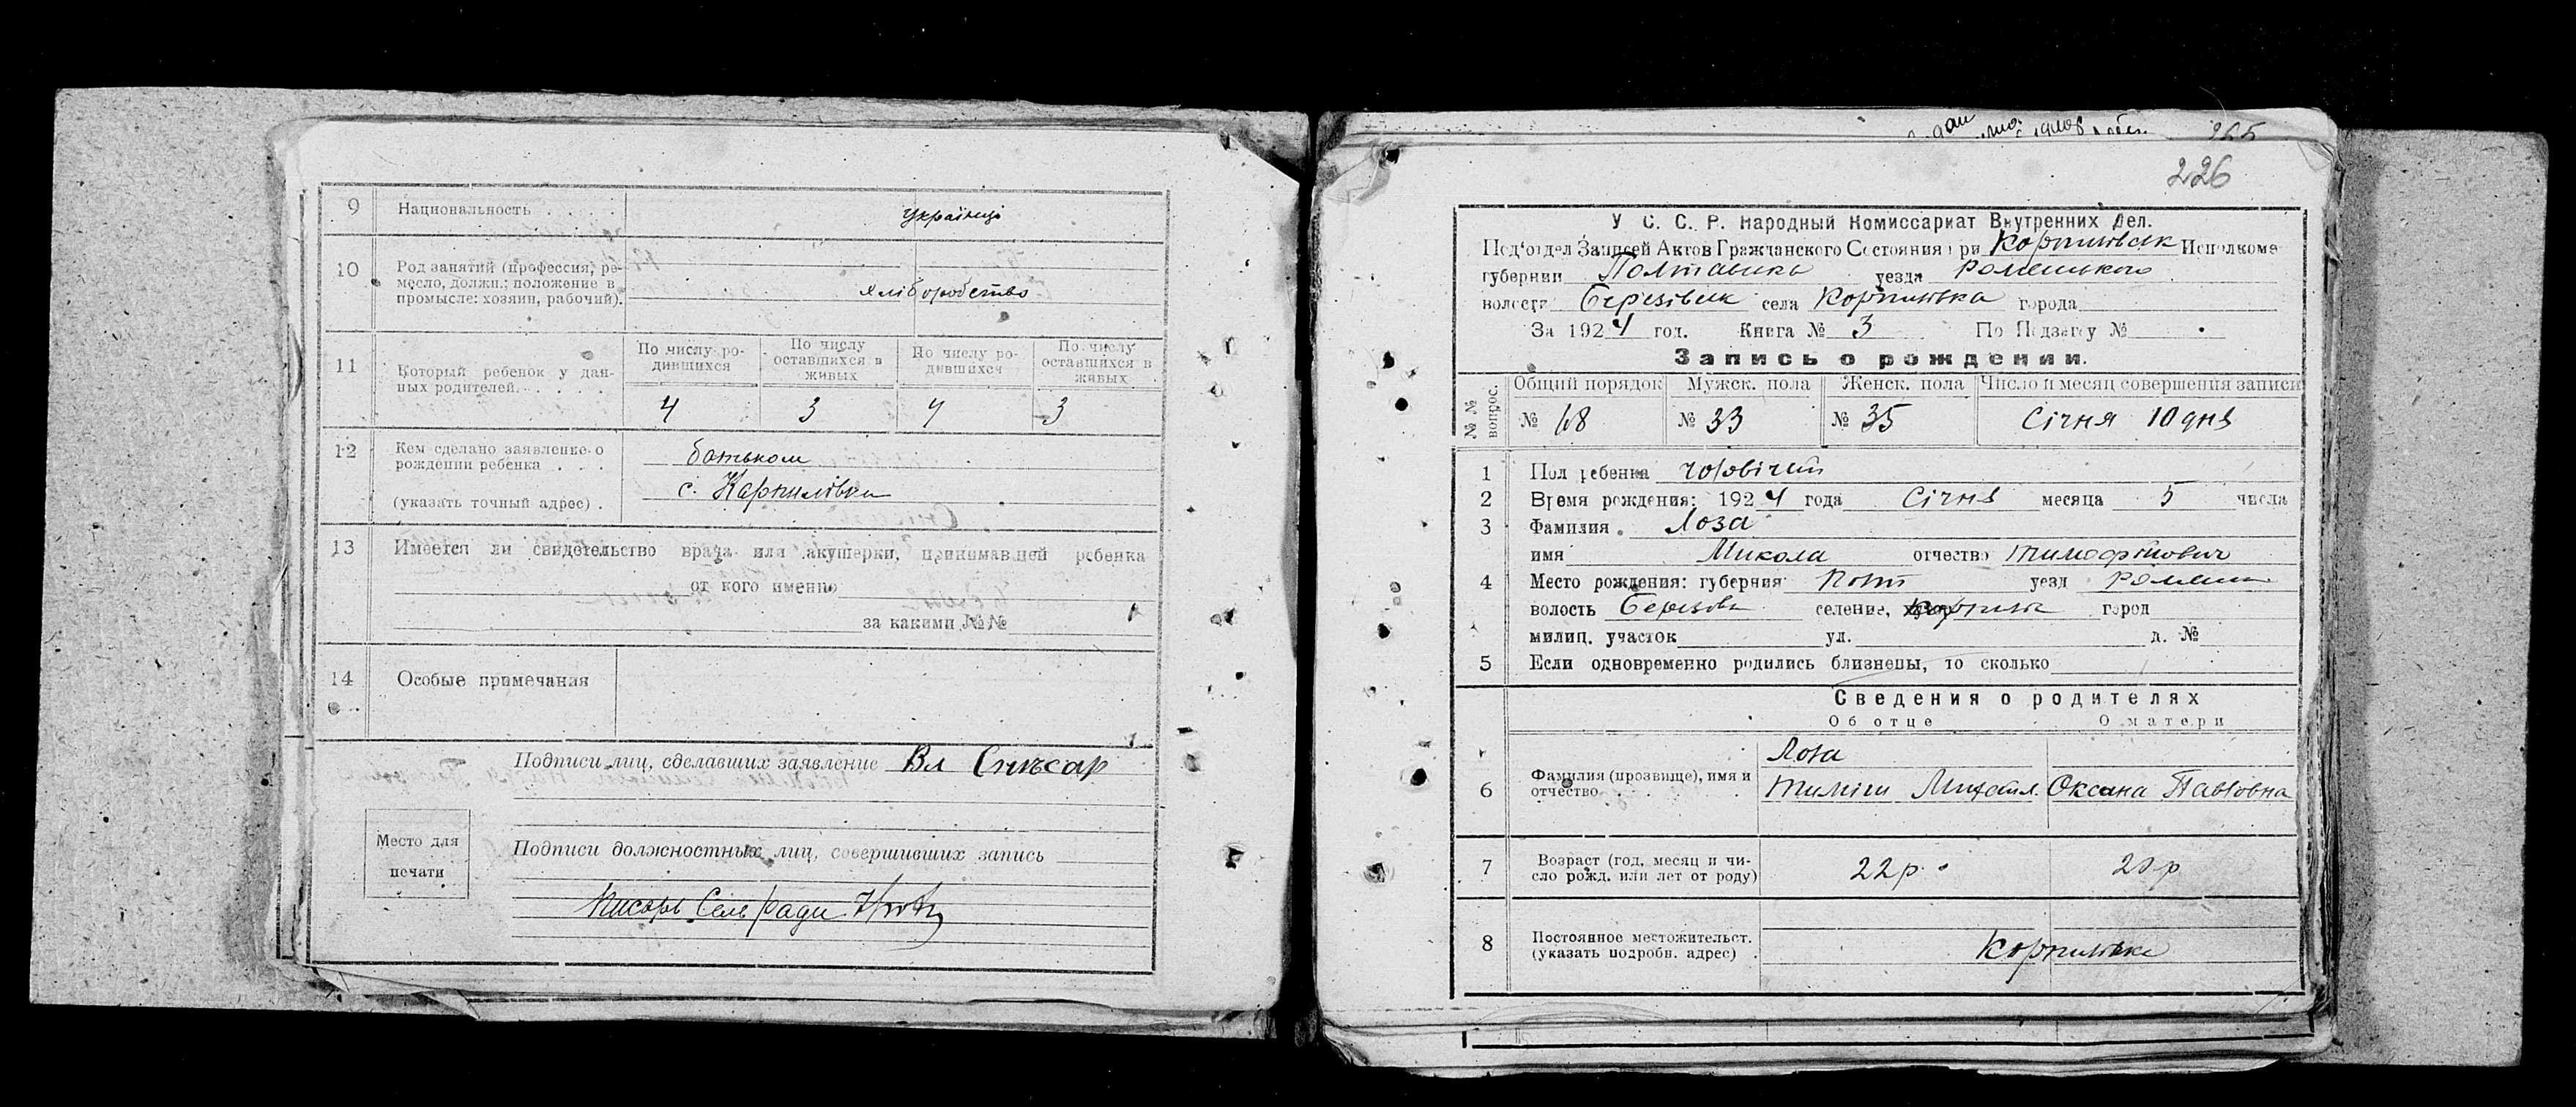 9 Национальность . . . . українці
10 Род занятий (профессия, ре-
месло, должн.; положение в
промысле: хозяин, рабочий). хліборобство
11 Который ребенок у дан-
ных родителей. . . . . .
По числу ро-
дившихся
По числу
оставшихся в
живых
По числу ро-
дившихся
По числу
оставшихся в
живых
4 3 4 3
12 Кем сделано заявление о
рождении ребенка . . .
(указать точный адрес) .
батьком
с. Карпилівка
13 Имеется ли свидетельство врача или акушерки, принимавшей ребенка
от кого именно
за какими №№
14 Особые примечания
Подписи лиц, сделавших заявление Вл Снѣсар
Место для
печати
Подписи должностных лиц, совершивших запись
Писарь Сельради
226
У. С. С. Р. Народный Комиссариат Внутренних Дел.
Под'отдел Записей Актов Гражданского Состояния при Карпилівск Исполкоме
губернии Полтавська уезда Роменського
волости Березівськ села Карпилівка города
За 1924 год. Книга № 3 По Подзагсу №
Запись о рождении.
№№ вопрос.
Общий порядок Мужск. пола Женск. пола Число и месяц совершения записи
№ 68 № 33 № 35 Січня 10 дня
1 Пол ребенка чоловічий
2 Время рождения: 1924 года Січня месяца 5 числа
3 Фамилия . Лоза
имя Микола отчество Тимофійович
4 Место рождения: губерния Полт уезд Ромен
волость Березовк селение, Карпилів город
милиц. участок ул. д. №
5 Если одновременно родились близнецы, то сколько
Сведения о родителях
Об отце О матери
6 Фамилия (прозвище), имя и
отчество . . . . .
Лоза
Тиміш Михайл. Оксана Павловна
7 Возраст (год, месяц и чи-
сло рожд. или лет от роду) 22 р.
8 Постоянное местожительст.
(указать подробн. адрес) . Карпилівка